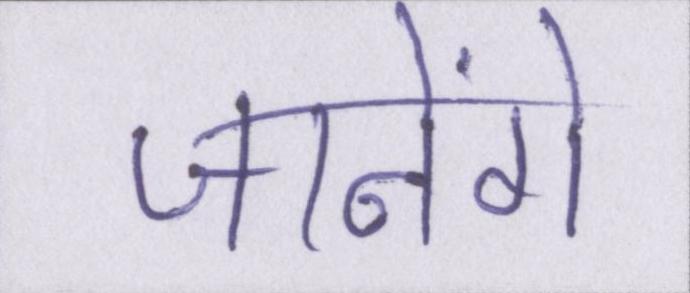 जानेंगे